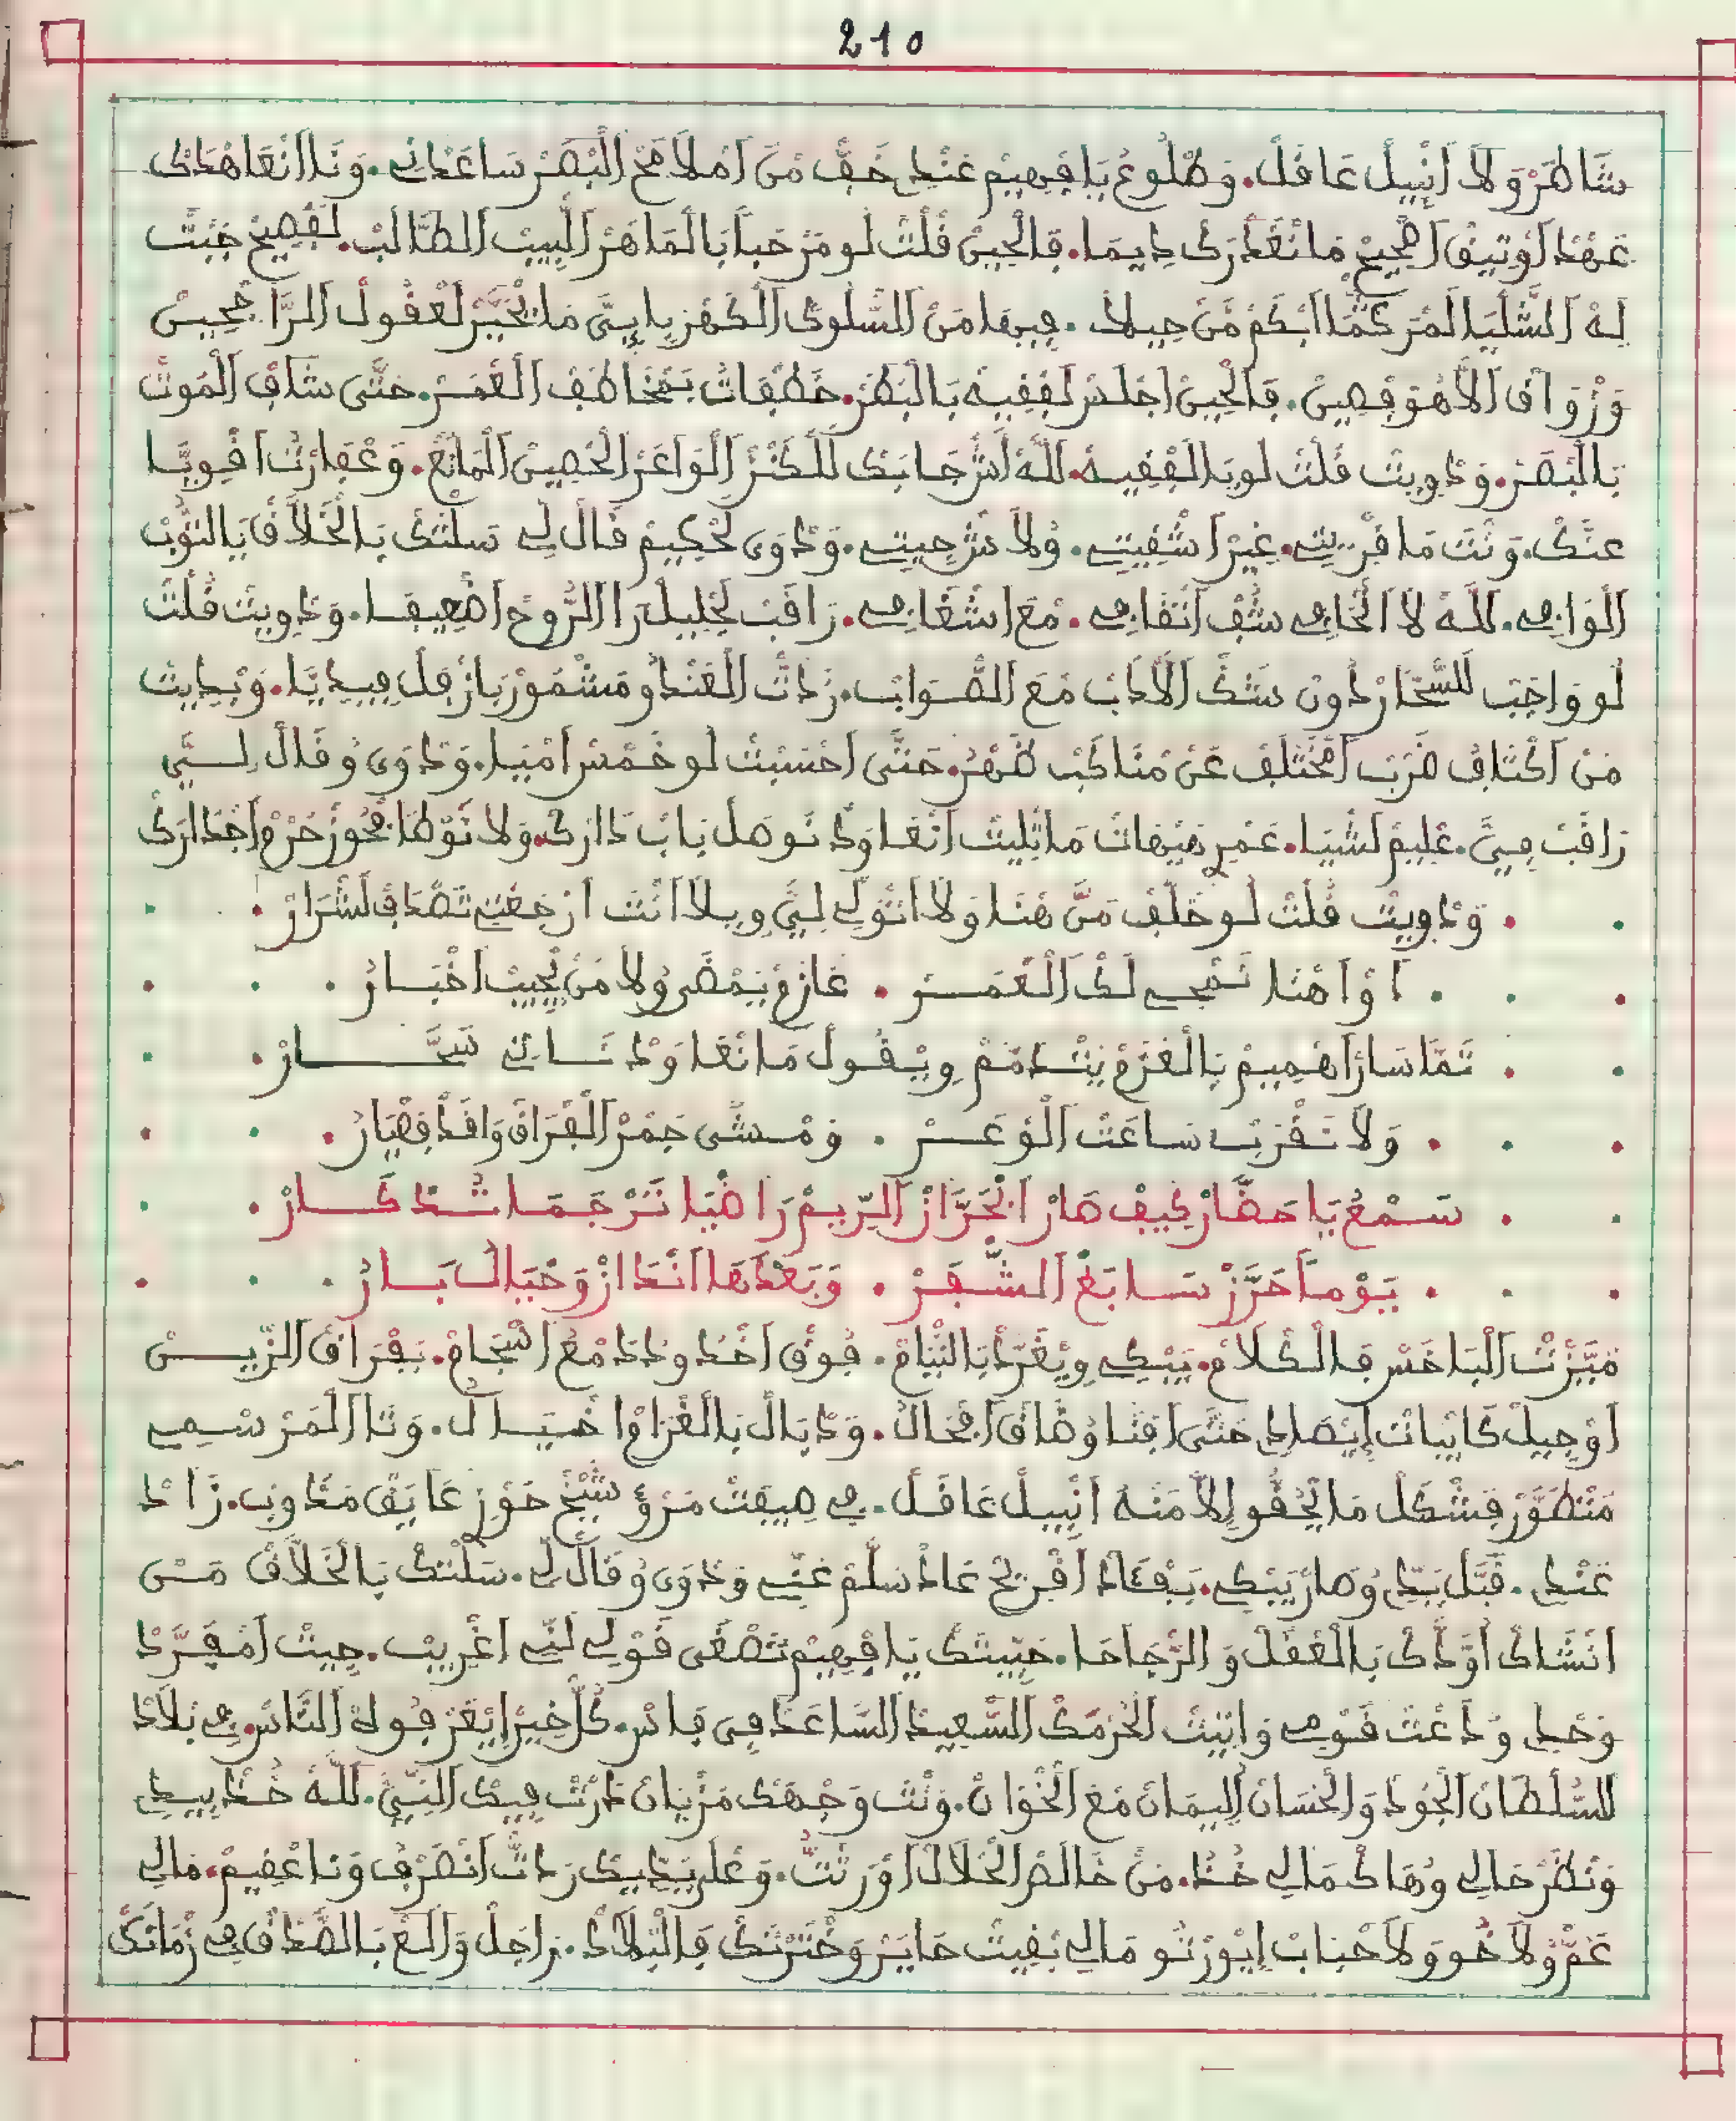 210
شَاطَرْ وَلاَ اَنْبِيلْ غَافَلْ. وَطْلُوعْ يَا فِهِيمْ عَنْدِ خَفّْ مْنَ اَمْلاَمَحْ اَلْبْصَرْ سَاعَدْنِي. وَنَا اَنْعَاهْدَكْ
عَهْدْ اَوْتِيقْ اَصْحِيحْ مَا نْغَدْرَكْ دِيمَا. فَالْحِينْ قُلْتْ لُو مَرْحَبَا بَالْمَاهَرْ اَلْبِيبْ اَلطَّالَبْ. لَفْصِيحْ جَبْتْ
لِهْ اَلشَّلْيَا لَمْرَكْمَا اَبْكَمْ مْنَ حِيلاَ. فِيهَا مَنْ اَلسّْلُوكْ اَلْكَهْرَبِيَا يِينْ مَا يْخَيَّرْ لَعْقُولْ اَلرَّاجْحِينْ
وَرْوَاقْ اَلاَّهُوَ فْصِينْ. فَالْحِينْ اجْلَسْ لَفْقِيهْ بَالْبْطَرْ. خَطْفَاتُ بَمْخَاطَفْ اَلْقْمَرْ. حَتَّى شَافْ اَلْمُوتْ
بَالْبْصَرْ. وَدْوِيتْ قُلْتْ لُو يَا لَفْقِيهْ. للَّهْ اَشْ جَابَكْ لَلْكَنْزْ اَلْوَاعَرْ اَلْحْصِينْ اَلْمَانَعْ. وَعْفَارْتُ اَقْوِيَّا
عنَّكْ. وَنْتَ مَا قْرِيتِ غِيرْ اَشْفِيتِ. وُلاَ شَرْحِيتِ. وَدْوَى لَحْكِيمْ قَالْ لِي سَلْتَكْ بَالْخَلاَّقْ يَا النُّوبْ
اَلْوَافِي. للَّهْ لاَ اَتْخَافِي شُفْ اَنْقَافِي. مْعَ اشْغَافِي. رَاقَبْ لَجْلِيلْ رَا اَلرُّوحْ اَضْعِيفَا. وَدْوِيتْ قُلْتْ
لُو وَاجَبْ لَلسَّحَّارْ دُونْ شَكّْ اَلْاَدَبْ مَعَ اَلصّْوَابْ. زَدْتْ اَلْعَنْدُو مَشْمُورْ بَازْفَلْ فِيدِيَّا. وَبْدِيتْ
مَنْ اَكْتَافُ ضَرْبْ اَمْخَتْلَفْ عَنْ مْنَاكَبْ ظَهْرُ. حَتَّى اَحْسَبْتْ لُو خَمْسْ اَمْيَا. وَدْوَى وُقَالْ لِيَ
رَاقَبْ فِيَّ. عْلِيمْ لَشْيَا. عَمْرِ هَيْهَاتْ مَا بْلِيتْ اَنْعَاوَدْ نُوصَلْ بَابْ دَارَكْ. وَلاَ نَوْطَا بْحُوزْ حُرْمْ اَجْدَارَكْ
وَدْوِيتْ قُلْتْ لُو خَلَّفْ مَنّْ هْنَا وَلاَ اَتْوَلِّي لِيَّ وِيلاَ اَنْتَ اَرْجَعْتِ تَصْدَافْ لَشْرَارْ
اَوْاَ هْنَا نَمْحِي لَكْ اَلْقْمَرْ. غَازْمْ يَمْضَرْ وُلاَ مَنْ يْجِيبْ اَخْبَارُ
ثَمَّا سَارْ اَهْمِيمْ بَالْعَزْمْ يَتْنَدَّمْ وِيْقُولْ مَا نْعَاوَدْ ثَانِي سَحَّارْ
وَلاَ تَقْرَبْ سَاعَتْ اَلْوْعَرْ. وَمْشَى جَمْرْ اَلْفْرَاقْ وَاقَدْ فَضْيَارُ
سَمْعْ يَا حَضَّارْ كِيفْ صَارْ اَلْحَرَّازْ اَلرِّيمْ رَاضْيَا تَرْجَمَا تُدْكَارْ
يَوْمَا حَرَّزْ سَابَغْ اَلشّْفَرْ. وَبَعْدْهَا اَنْدَازْ وَحْيَالْ بَارُ
مَيَّزْتْ اَلْبَاخَسْ فَالْكْلاَمْ. يَبْكِي وِيْغَرَّدْ بَالنّْيَامْ. فُوقْ اَخْدُودُ دَمْعُ اَسْجَامْ. بَفْرَاقْ اَلزِّينْ
اَوْجِيلْ كَايْبَاتْ اِيْصَادِي حَتَّى اَفْنَا وُضَاقْ اَمْحَالُ. وَدْبَالْ بَالْغْرَامْ اَخْيَالُ. وَنَا اَلْمَرْسْمِي
مَتْطَوَّرْ فَشْكَلْ مَا يْخُفُّو اِلاَّ مَنُّه اَنْبِيلْ غَافَلْ. فِي صِيفَتْ مَرْوْ شِيخْ حَوْزِ عَايَقْ مَدُّوبْ. زَادْ
عَنْدِ. قَبَّلْ يَدِّي وُصَارْ يَبْكِي. بَفْؤَادْ اَقْرِيحْ عَادْ سَلَّمْ عَنِّي وَدْوَى وُقَالْ لِي. سَلْتَكْ بَالْخَلاَّقْ مَنْ
اَنْشَاكْ اَوَّدَّاكْ بَالْعْقَلْ وَالرّْجَاحَا. حَبِّيتَكْ يَا فِهِيمْ تَصْغَى قَوْلِي لَنِّي اَغْرِيبْ. جِيتْ اَمْفَرَّدْ
وَحْدِي وُدَعْتْ قَوْمِي وَاتِيتْ اَلْحُرْمَكْ اَلسّْعِيدْ اَلسَّاعْدْ فِي فَاسْ. كُلّْ خِيرْ اِيْعَزْ فُولَهْ اَلنَّاسْ. فِي بْلاَدْ
اَلسُّلْطَانْ اَلْجُودْ وَالْحْسَانْ اَلِيمَانْ مَعَ اَلْخْوَانْ. وَنْتَ وَجْهَكْ مَزْيَانْ دَرْتْ فِيكْ اَلنِّيَّ. للَّهْ خُدْ بِيدِي
وَنْظَرْ حَالِي وُهَاكْ مَالِي خُدُ. مَنْ خَالَصْ اَلْحْلاَلْ اَوْرَثْتُ. وَعْلَى يَدِّيكْ رَدْتْ اَنْصَرْفُ وَنَا عْقِيمْ. مَالِي
عَمّْ وُلاَ خُو وَلاَ حْبَابْ اِيْوَرْثُو مَالِي بْقِيتْ حَايَرْ وَخْتَرْتَكْ فَالْبْلاَدْ. رَاجَلْ وَالَعْ بَالصَّدْقْ فِي زْمَانَكْ